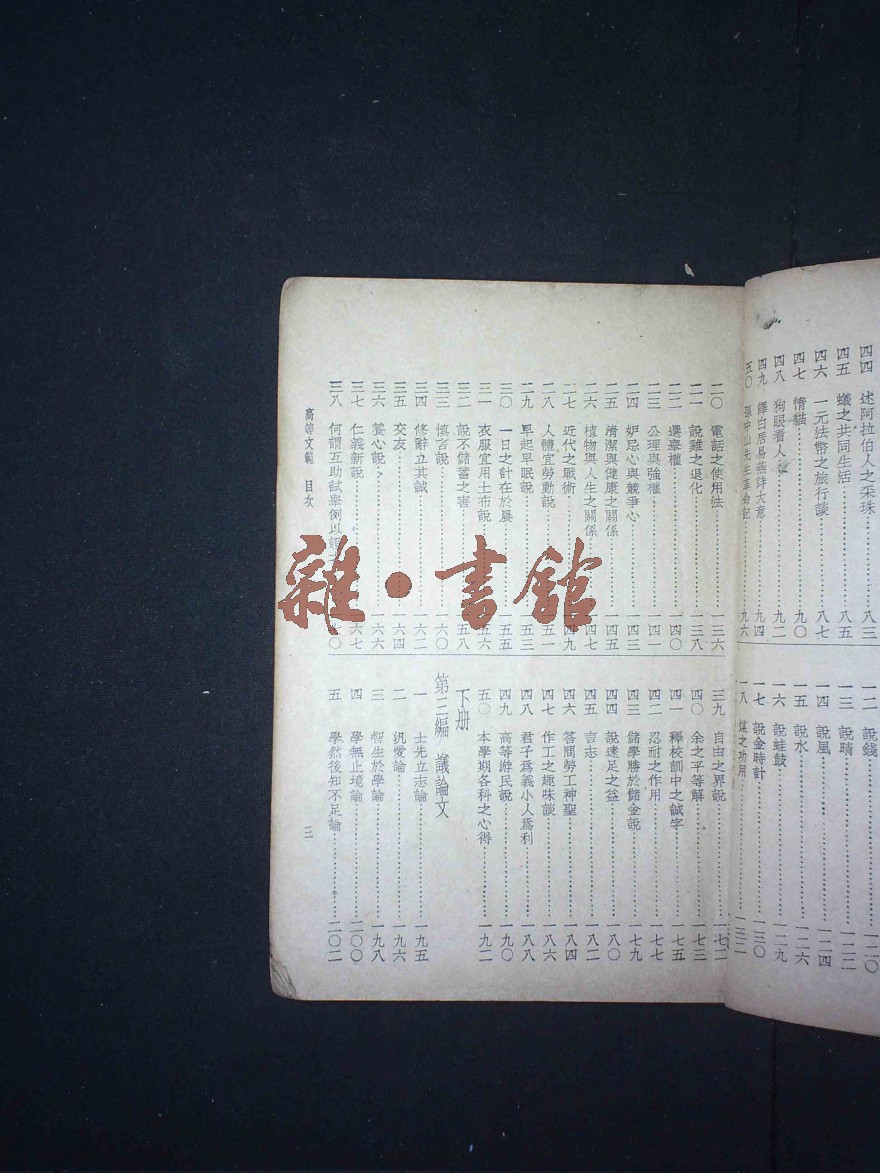 四四 述阿拉伯人之采珠……八三
四五 蟻之共同生活……八五
四六 一元法幣之旅行談……八七
四七 惰貓……九〇
四八 狗眼看人……九二
四九 譯白居易燕詩大意……九四
五〇 中山先生 記……九六
一二 說錢……一二〇
一三 說晴……一二二
一四 說風……一二四
一五 說水……一二六
一六 說蛙鼓……一二九
一七 說金時計……一三〇
一八 煤之功用……一三二
二〇 電話之使用法……一三六
二一 說雞之退化……一三八
二二 選舉權……一四〇
二三 公理與強權……一四一
二四 妒忌心與競爭心……一四三
二五 清潔與健康之關係……一四五
二六 植物與人生之關係……一四七
二七 近代之戰術……一四九
二八 人體宜勞動說……一五一
二九 早起早眠說……一五三
三〇 一日之計在於晨……一五五
三一 衣服宜用土布說……一五六
三二 說不儲蓄之害……一五八
三三 慎言說……一六〇
三四 修辭立其誠……一六二
三五 交友……一六四
三六 養心說……一六六
三七 仁義新說……一六七
三八 何謂互助試舉例以證……七〇
三九 自由之界說……一七二
四〇 余之平等解……一七三
四一 釋校訓中之誠字……一七五
四二 忍耐之作用……一七七
四三 儲學勝於儲金說……一七九
四四 說遠足之益……一八〇
四五 言志……一八二
四六 答問勞工神聖……一八四
四七 作工之趣味談……一八六
四八 君子爲義小人爲利……一八八
四九 高等游民說……一九〇
五〇 本學期各科之心得……一九二
下册
第三編 議論文
一 士先立志論……一九五
二 汎愛論……一九六
三 智生於學論……一九八
四 學無止境論……二〇〇
五 學然後知不足論……二〇二
高等文範 目次 三
雜·書館